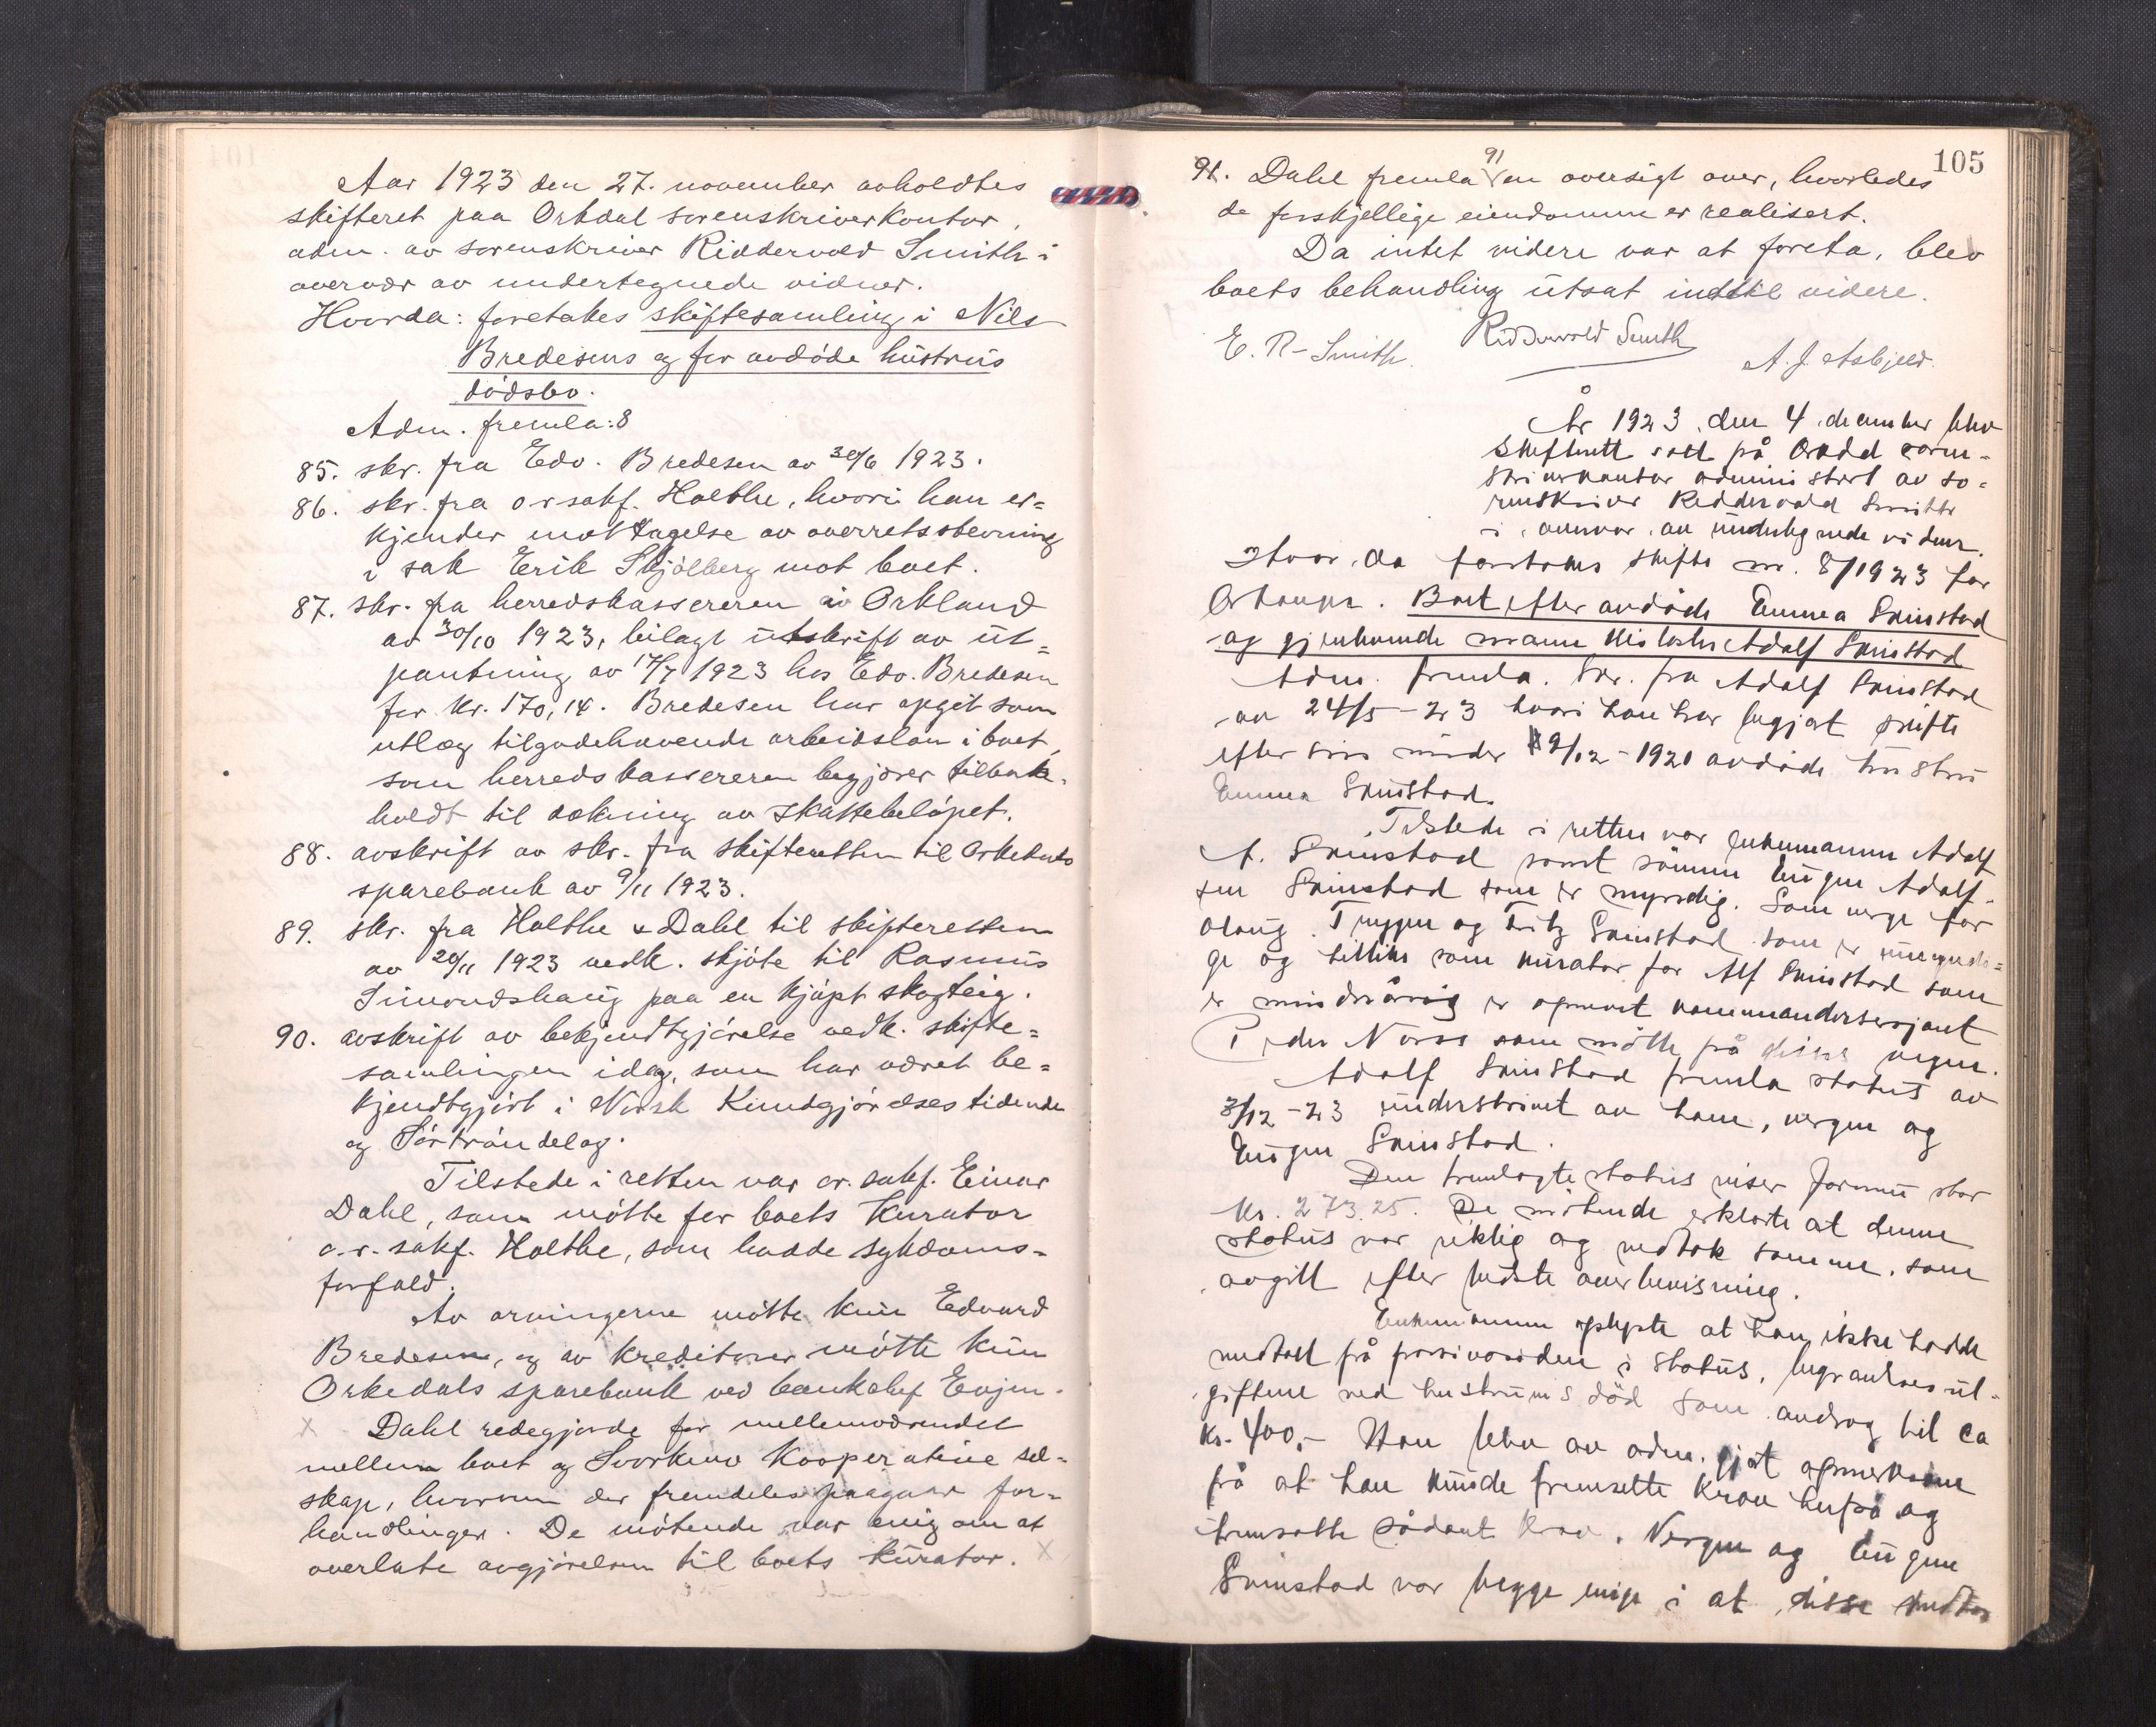 Aar 1923 den 27. november avholdtes
skifteret paa Orkdal sorenskriverkontor,
adm. av sorenskriver Riddervold Smith i
overvær av undertegnede vidner.
Hvorda: foretakes skiftesamling i Nils
Bredesens og før avdøde hustrus
dødsbo.
Adm. fremla: 8
85. skr. fra Edv. Bredesen av 30/6 1923.
86. skr. fra o r sakf. Holthe, hvori han er=
kjender mottagelse av overretsstevning
i sak Erik Skjølberg mot boet.
87. skr. fra herredskassereren i Orkland
av 30/10 1923, bilagt utskrift av ut=
pantning av 17/7 1923 hos Edv. Bredesen
for kr. 170,14. Bredesen har opgit som
utlæg tilgodehavende arbeidsløn i boet,
som herredskassereren begjærer tilbake=
holdt til dækning av skattebeløpet.
88. avskrift av skr. fra skifteretten til Orkedals
sparebank av 9/11 1923.
89. skr. fra Holthe & Dahl til skifteretten
av 20/11 1923 vedk. skjøte til Rasmus
Simondshaug paa en kjøpt skogteig.
90. avskrift av bekjendtgjørelse vedk. skifte=
samlingen idag, som har været be=
kjendtgjort i Norsk Kundgjørelsestidende
og Sørtrøndelag.
Tilstede i retten var or. sakf. Einar
Dahl, som møtte for boets kurator
o.r. sakf. Holthe, som hadde sykdoms=
forfald.
Av arvingerne møtte kun Edvard
Bredesen, og av kreditorer møtte kun
Orkedals sparebank ved bankchef Evjen.
X Dahl redegjorde for mellemværendet
mellem boet og Svorkmo Kooperative sel=
skap, hvorom der fremdeles paagaar for=
handlinger. De møtende var enig om at
overlate avgjørelsen til boets kurator. X
105
91
91. Dahl fremla en oversigt over, hvorledes
de forskjellige eiendomme er realisert.
Da intet videre var at foreta, blev
boets behandling utsat indtil videre.
E. R-Smith. Riddervold Smith A. J. Asbjell.
År 1923 den 4. december blev
skifterett satt på Orkdal soren=
skriverkontor administrert av so=
renskriver Riddervold Smith
i overvær av undertegnede vidner.
Hvor da foretokes skifte nr. 8/1923 for
Orkanger. Boet efter avdøde Emma Sninstad
og gjenlevende mann Adolf Sninstad
Adm. fremla. Skr. fra Adolf Sninstad
av 24/5-23 hvori han har begjært skifte
efter sin under 9/12-1920 avdøde hustru
Emma Sninstad.
Tilstede i retten var enkemannen Adolf
A. Sninstad samt sønnen Eugen Adolf=
sen Sninstad som er myndig. Som verge for
Olaug, Trygve og Fritz Sninstad som er umyndi=
ge og tillike som kurator for Alf Sninstad som
er mindreårig er opnevnt kommandersersjant
Peder Norss som møtte på disses vegne.
Adolf Sninstad fremla status av
3/12-23 underskrevet av ham, vergen og
Eugen Sninstad.
Den fremlagte status viser formue stor
kr. 273.25. De møtende erklærte at denne
status var riktig og vedtok samme, som
avgitt efter bedste overbevisning.
Enkemannen oplyste at han ikke hadde
medtatt på passivasiden i status, begravelsesut=
giftene ved hustruens død som androg til ca
kr. 400,- Han blev av adm. gjort opmerksom
på at han kunde fremsette krav herpå og
fremsatte sådant krav. Vergen og Eugen
Sninstad var begge enige i at disse